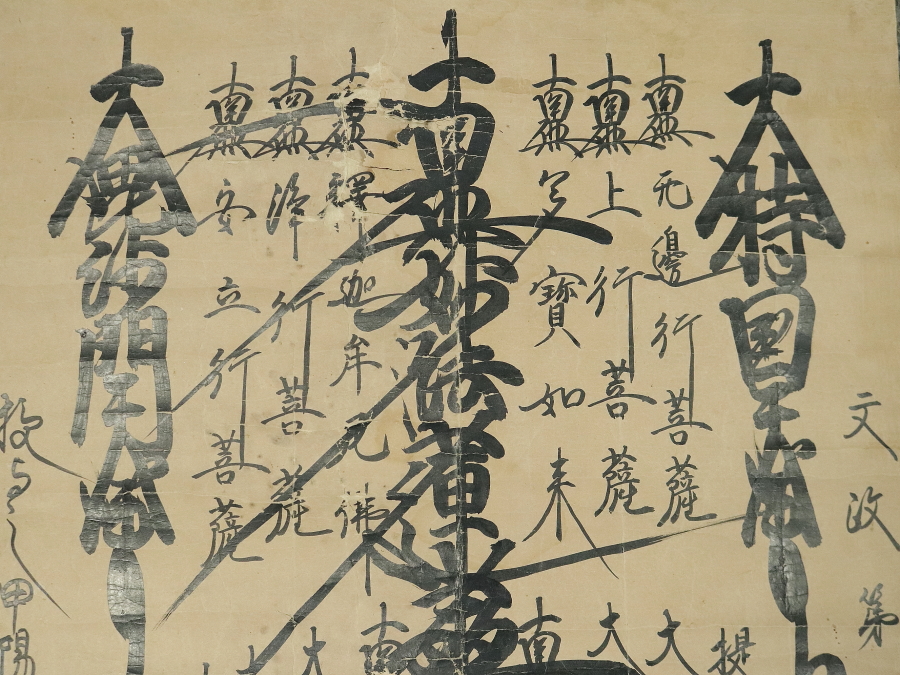 文政第
大持国天王
南無无邊行菩薩
南無上行菩薩
南無多寶如来
南無妙法蓮華
南無釋迦牟尼佛
南無淨行菩薩
南無安立行菩薩
大毘沙門天王
授与之甲陽
提
大
大
南
南
大